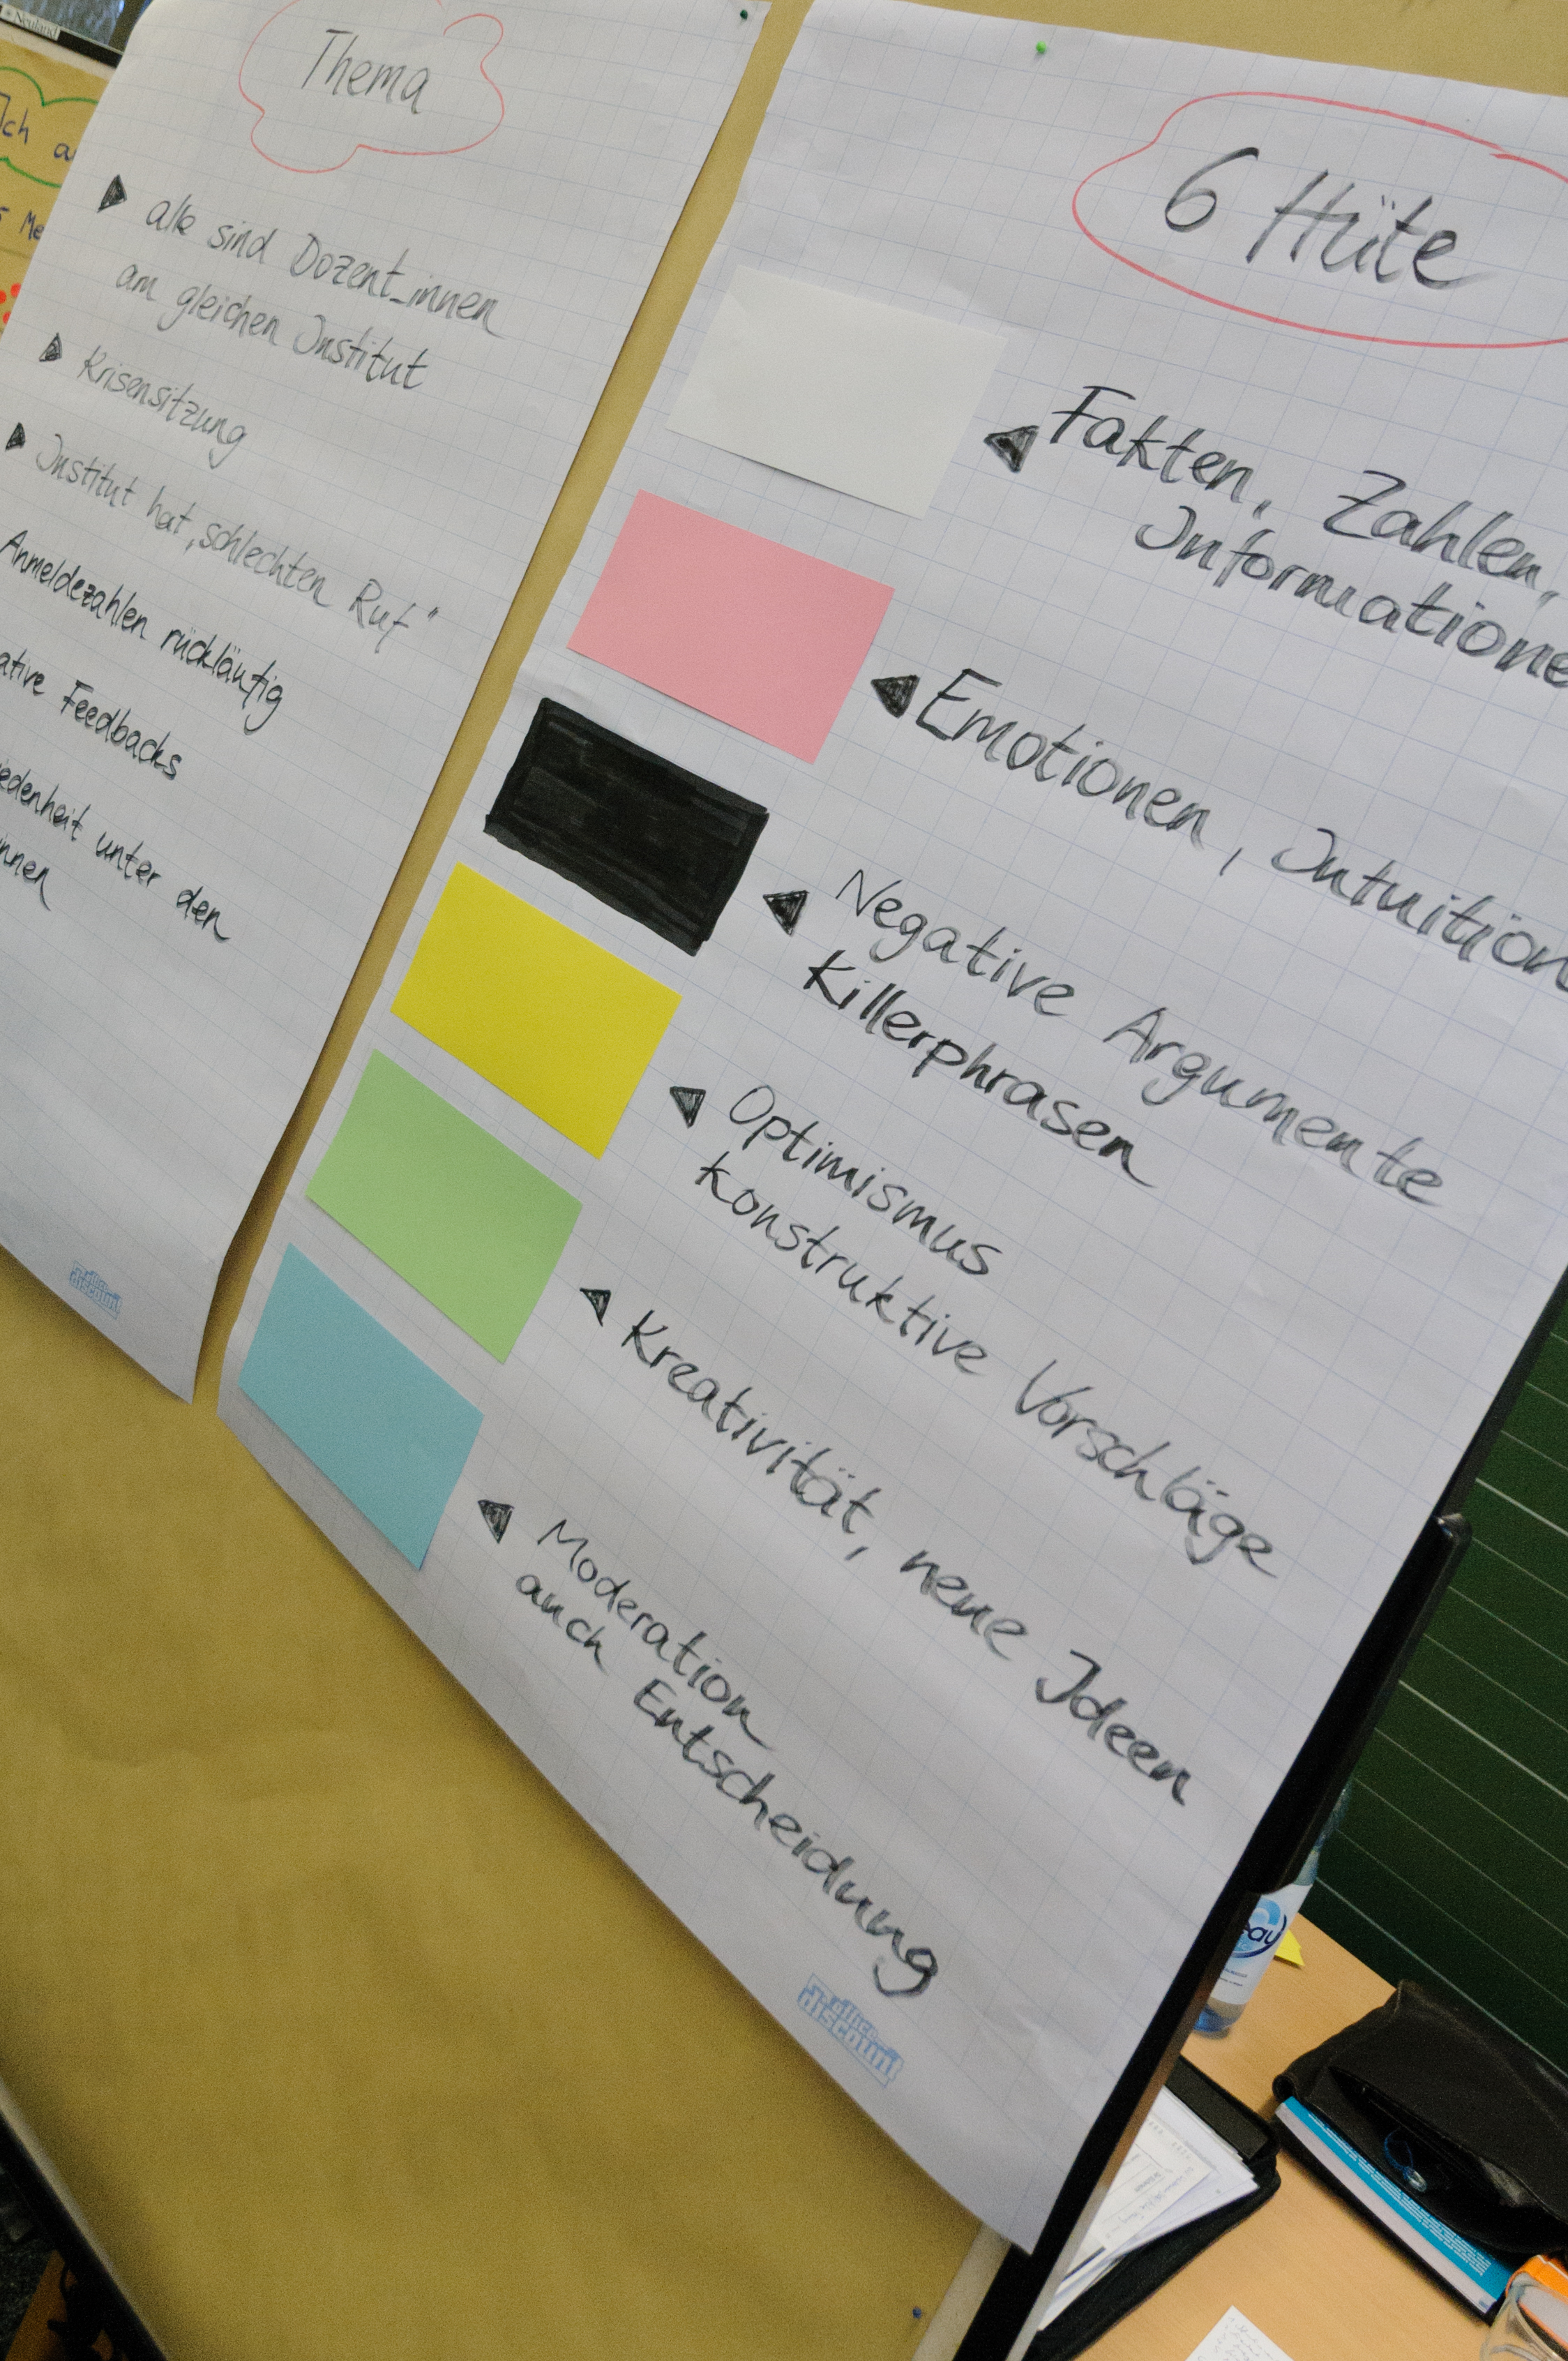 Neuland
Ich
Thema
alle sind Dozent_innen
am gleichen Institut
Krisensitzung
Institut hat „schlechten Ruf"
Anmeldezahlen rückläufig
ative Feedbacks
edenheit unter den
innen
office
discount
6 Hüte
Fakten, Zahlen,
Informatione
Emotionen, Intuition
Negative Argumente
Killerphrasen
Optimismus
Konstruktive Vorschläge
Kreativität, neue Ideen
Moderation
auch Entscheidung
office
discount